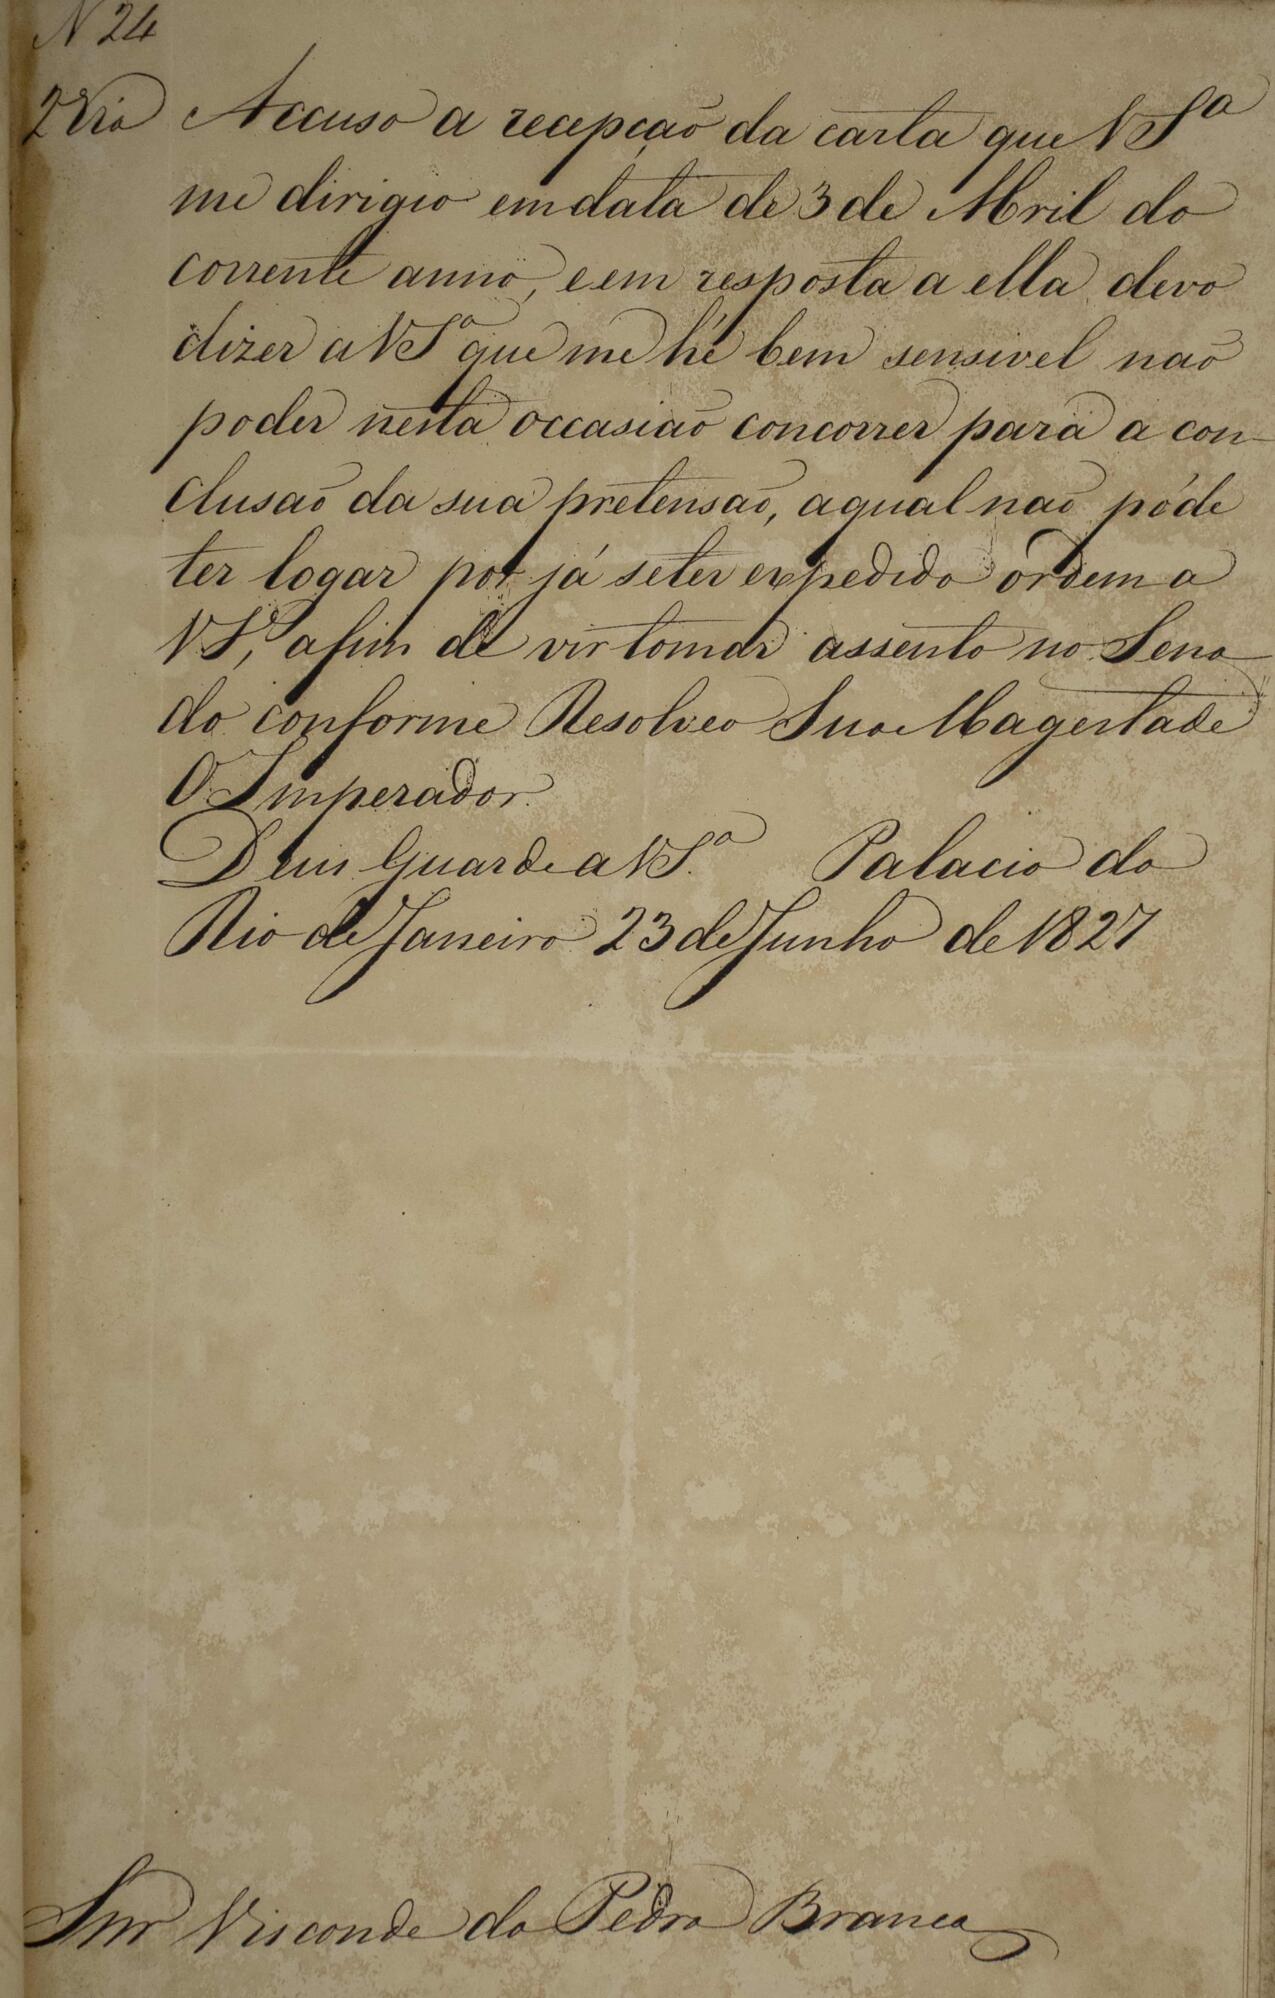 N 24
2 Via Accuso a recepção da carta que V Sª
me dirigio em data de 3 de Abril do
corrente anno, e em resposta a ella devo
dizer a V Sª que me hé bem sensivel não
poder nesta occasião concorrer para a con-
clusão da sua pretensão, a qual não póde
ter logar por já se ter expedido ordem a
V Sª, afim de vir tomar assento no Sena
do conforme Resolveo Sua Magestade
O Imperador.
Deus Guarde a V Sª Palacio do
Rio de Janeiro 23 de Junho de 1827
Snr Visconde da Pedra Branca